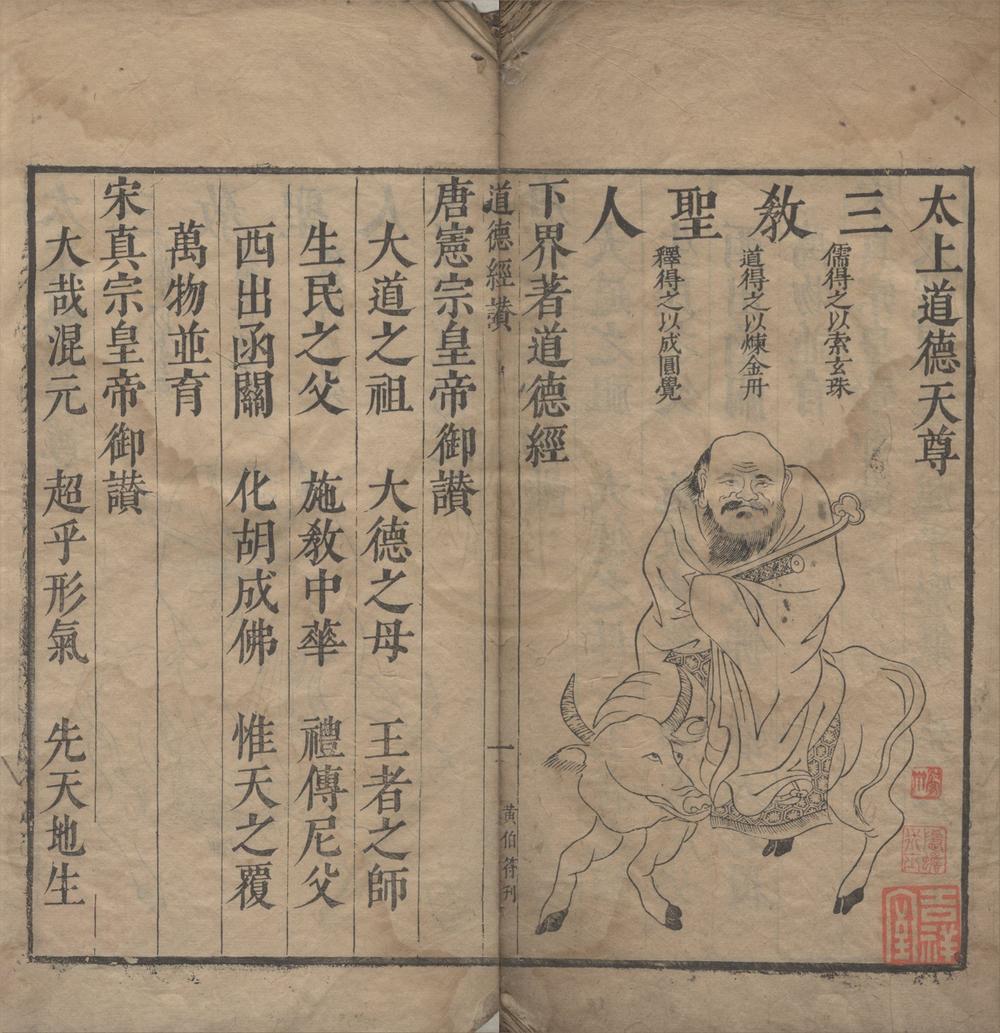 太上道德天尊
三教聖人
儒得之以索玄珠
道得之以煉金丹
釋得之以成圓覺
下界著道德經
道德經讃
一
黃伯符刊
唐憲宗皇帝御讃
大道之祖　大德之母　王者之師
生民之父　施教中華　禮傳尼父
西出函關　化胡成佛　惟天之覆
萬物並育
宋真宗皇帝御讃
大哉混元　超乎形氣　先天地生
吉祥室